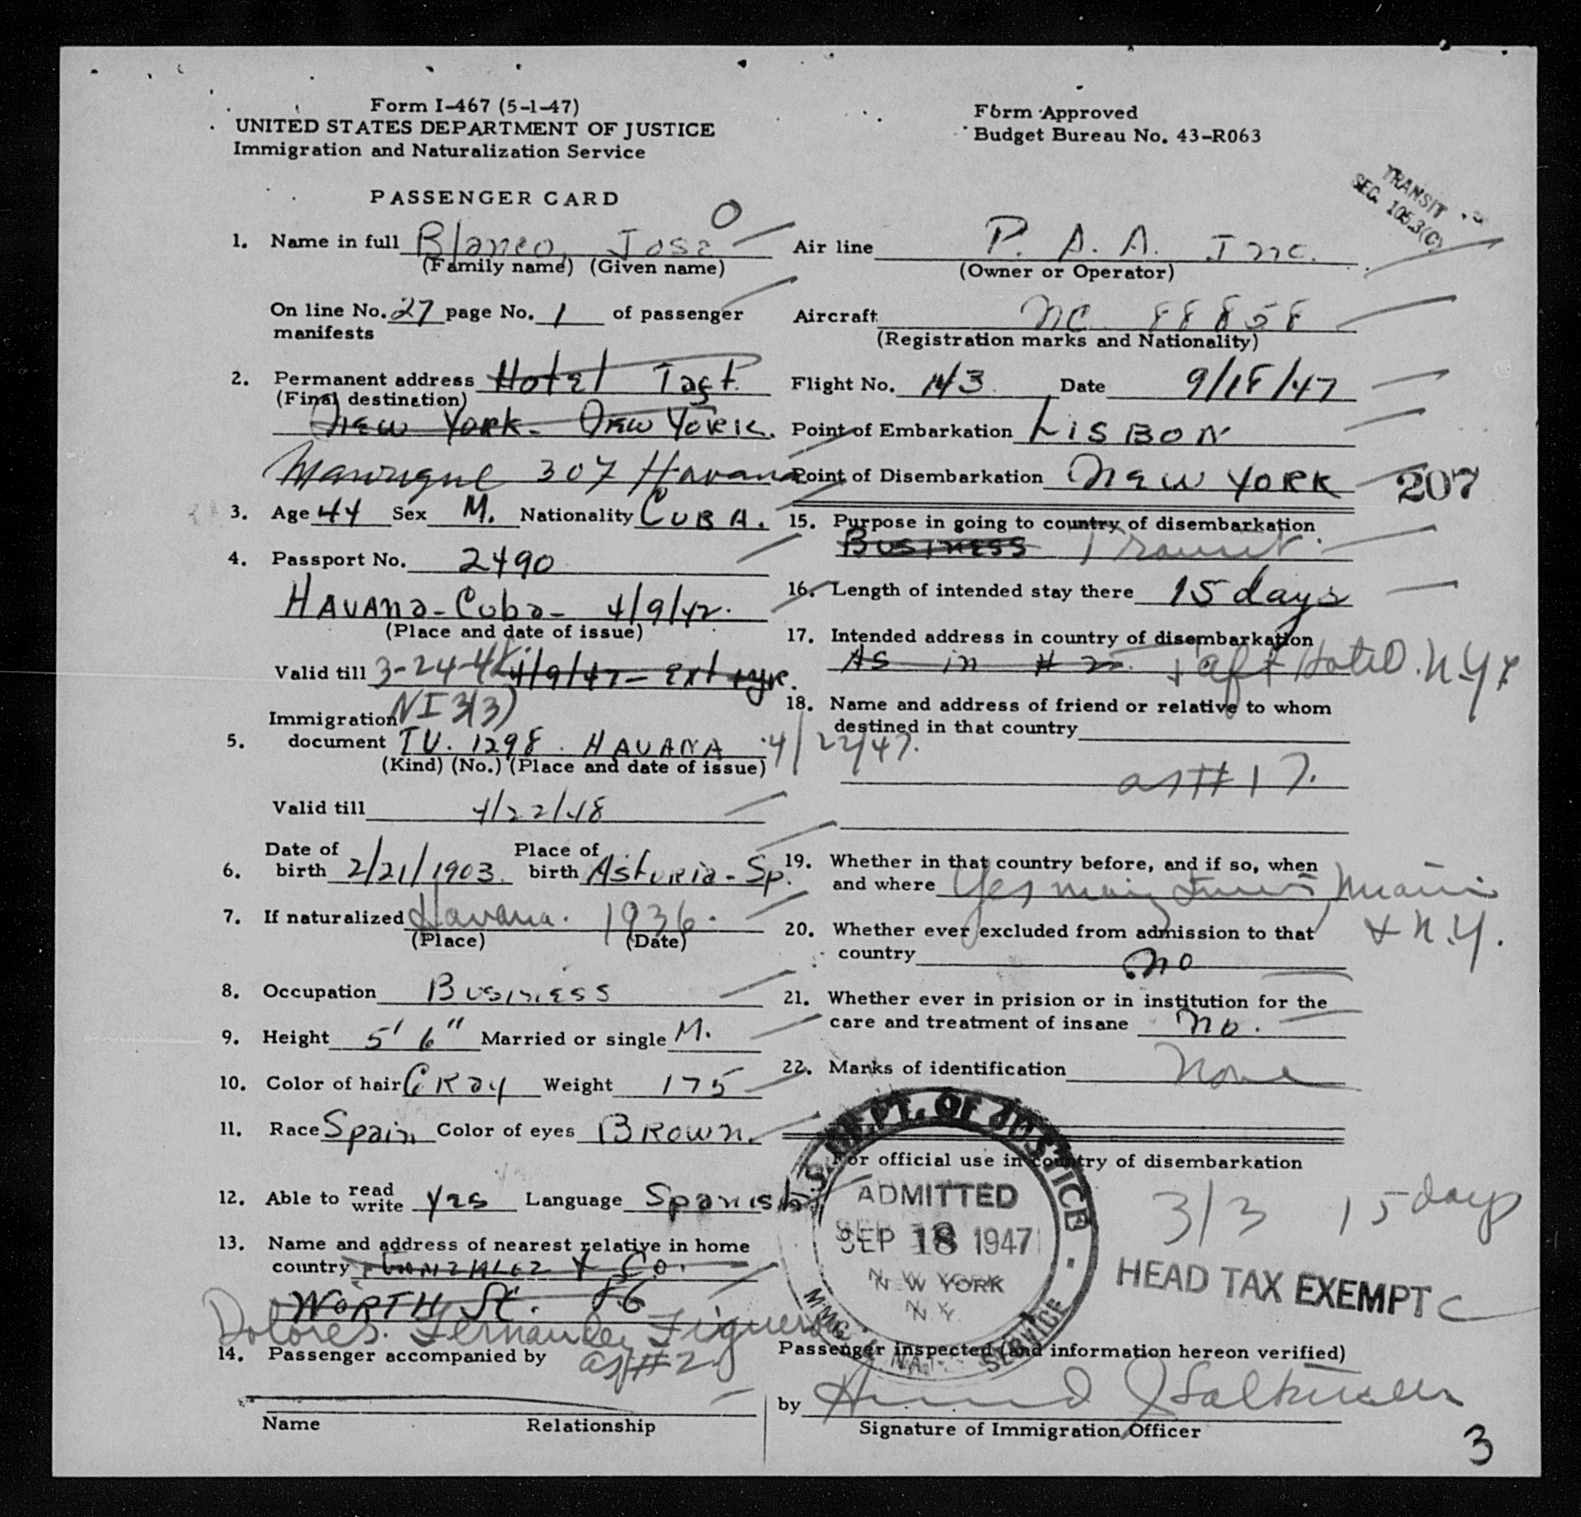 Form I-467 (5-1-47)
UNITED STATES DEPARTMENT OF JUSTICE
Immigration and Naturalization Service
Form Approved
Budget Bureau No. 43-R063
PASSENGER CARD
TRANSIT
SEC. 105.3(C)
1. Name in full Blanco, Jose
(Family name) (Given name)
On line No. 27 page No. 1 of passenger
manifests
2. Permanent address Hotel Taft
(Final destination)
New York - New York.
Manrique 307 Havana
3. Age 44 Sex M. Nationality CUBA.
4. Passport No. 2490
HAVANA - Cuba - 4/9/42.
(Place and date of issue)
Valid till 3-24-48 4/9/47 - Ext
NI 3(3)
Immigration
5. document TV. 1298. HAVANA 4/22/47.
(Kind) (No.) (Place and date of issue)
Valid till 4/22/48
6. Date of birth 2/21/1903 Place of birth Asturia - Sp.
7. If naturalized Havana. 1936.
(Place) (Date)
8. Occupation Business
9. Height 5' 6" Married or single M.
10. Color of hair GRay Weight 175
11. Race Spain Color of eyes BROWN.
12. Able to read write yes Language Spanish
13. Name and address of nearest relative in home
country Gonzalez & Co.
WORTH St. 86
Dolores Fernandez Figueroa
as #2
14. Passenger accompanied by
Name Relationship
Air line P. A. A. Inc.
(Owner or Operator)
Aircraft NC 88858
(Registration marks and Nationality)
Flight No. 143 Date 9/18/47
Point of Embarkation LISBON
Point of Disembarkation New YORK
207
15. Purpose in going to country of disembarkation
BUSINESS Transit
16. Length of intended stay there 15 days
17. Intended address in country of disembarkation
As in # 2. Taft Hotel. N.Y.
18. Name and address of friend or relative to whom
destined in that country
as #17.
19. Whether in that country before, and if so, when
and where Yes many times Miami
& N.Y.
20. Whether ever excluded from admission to that
country No
21. Whether ever in prision or in institution for the
care and treatment of insane No.
22. Marks of identification None
For official use in country of disembarkation
DEPT. OF JUSTICE
ADMITTED
SEP 18 1947
NEW YORK
N.Y.
SERVICE
3/3 15 days
HEAD TAX EXEMPT
Passenger inspected (and information hereon verified)
by
Signature of Immigration Officer
3